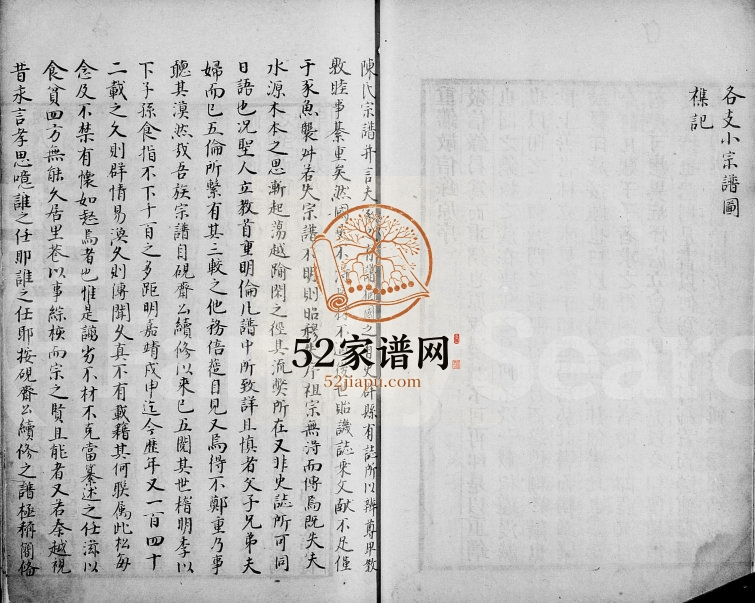 各支小宗譜圖
樵記
陳氏宗譜并言夫 之有 縣有誌所以辨尊卑敦
敦睦事綦重矣然 貽譏誌乘文獻不足僅
于豕魚襲舛若夫宗譜不明則昭穆 祖宗無淂而傳焉既失夫
水源木本之思漸起蕩越踰閑之徑其流獘所在又非史誌所可同
日語也况聖人立教首重明倫凡譜中所致詳且慎者父子兄弟夫
婦而已五倫所繫有其三較之他務倍蓰自見又焉得不鄭重乃事
聽其漠然哉吾族宗譜自硯齋公續修以來已五閱其世稽明季以
下子孫食指不下千百之多距明嘉靖戊申迄今歷年又一百四十
二載之久則群情易渙久則傳聞久真不有載籍其何聯属此松每
念及不禁有懷如慭焉者也惟是謭劣不材不克當纂述之任滋以
食貧四方無能久居里巷以事綜核而宗之賢且能者又若秦越視
昔未言孝思噫誰之仕耶誰之任耶按硯齋公續修之譜極稱簡俻
52家谱网
52jiapu.com